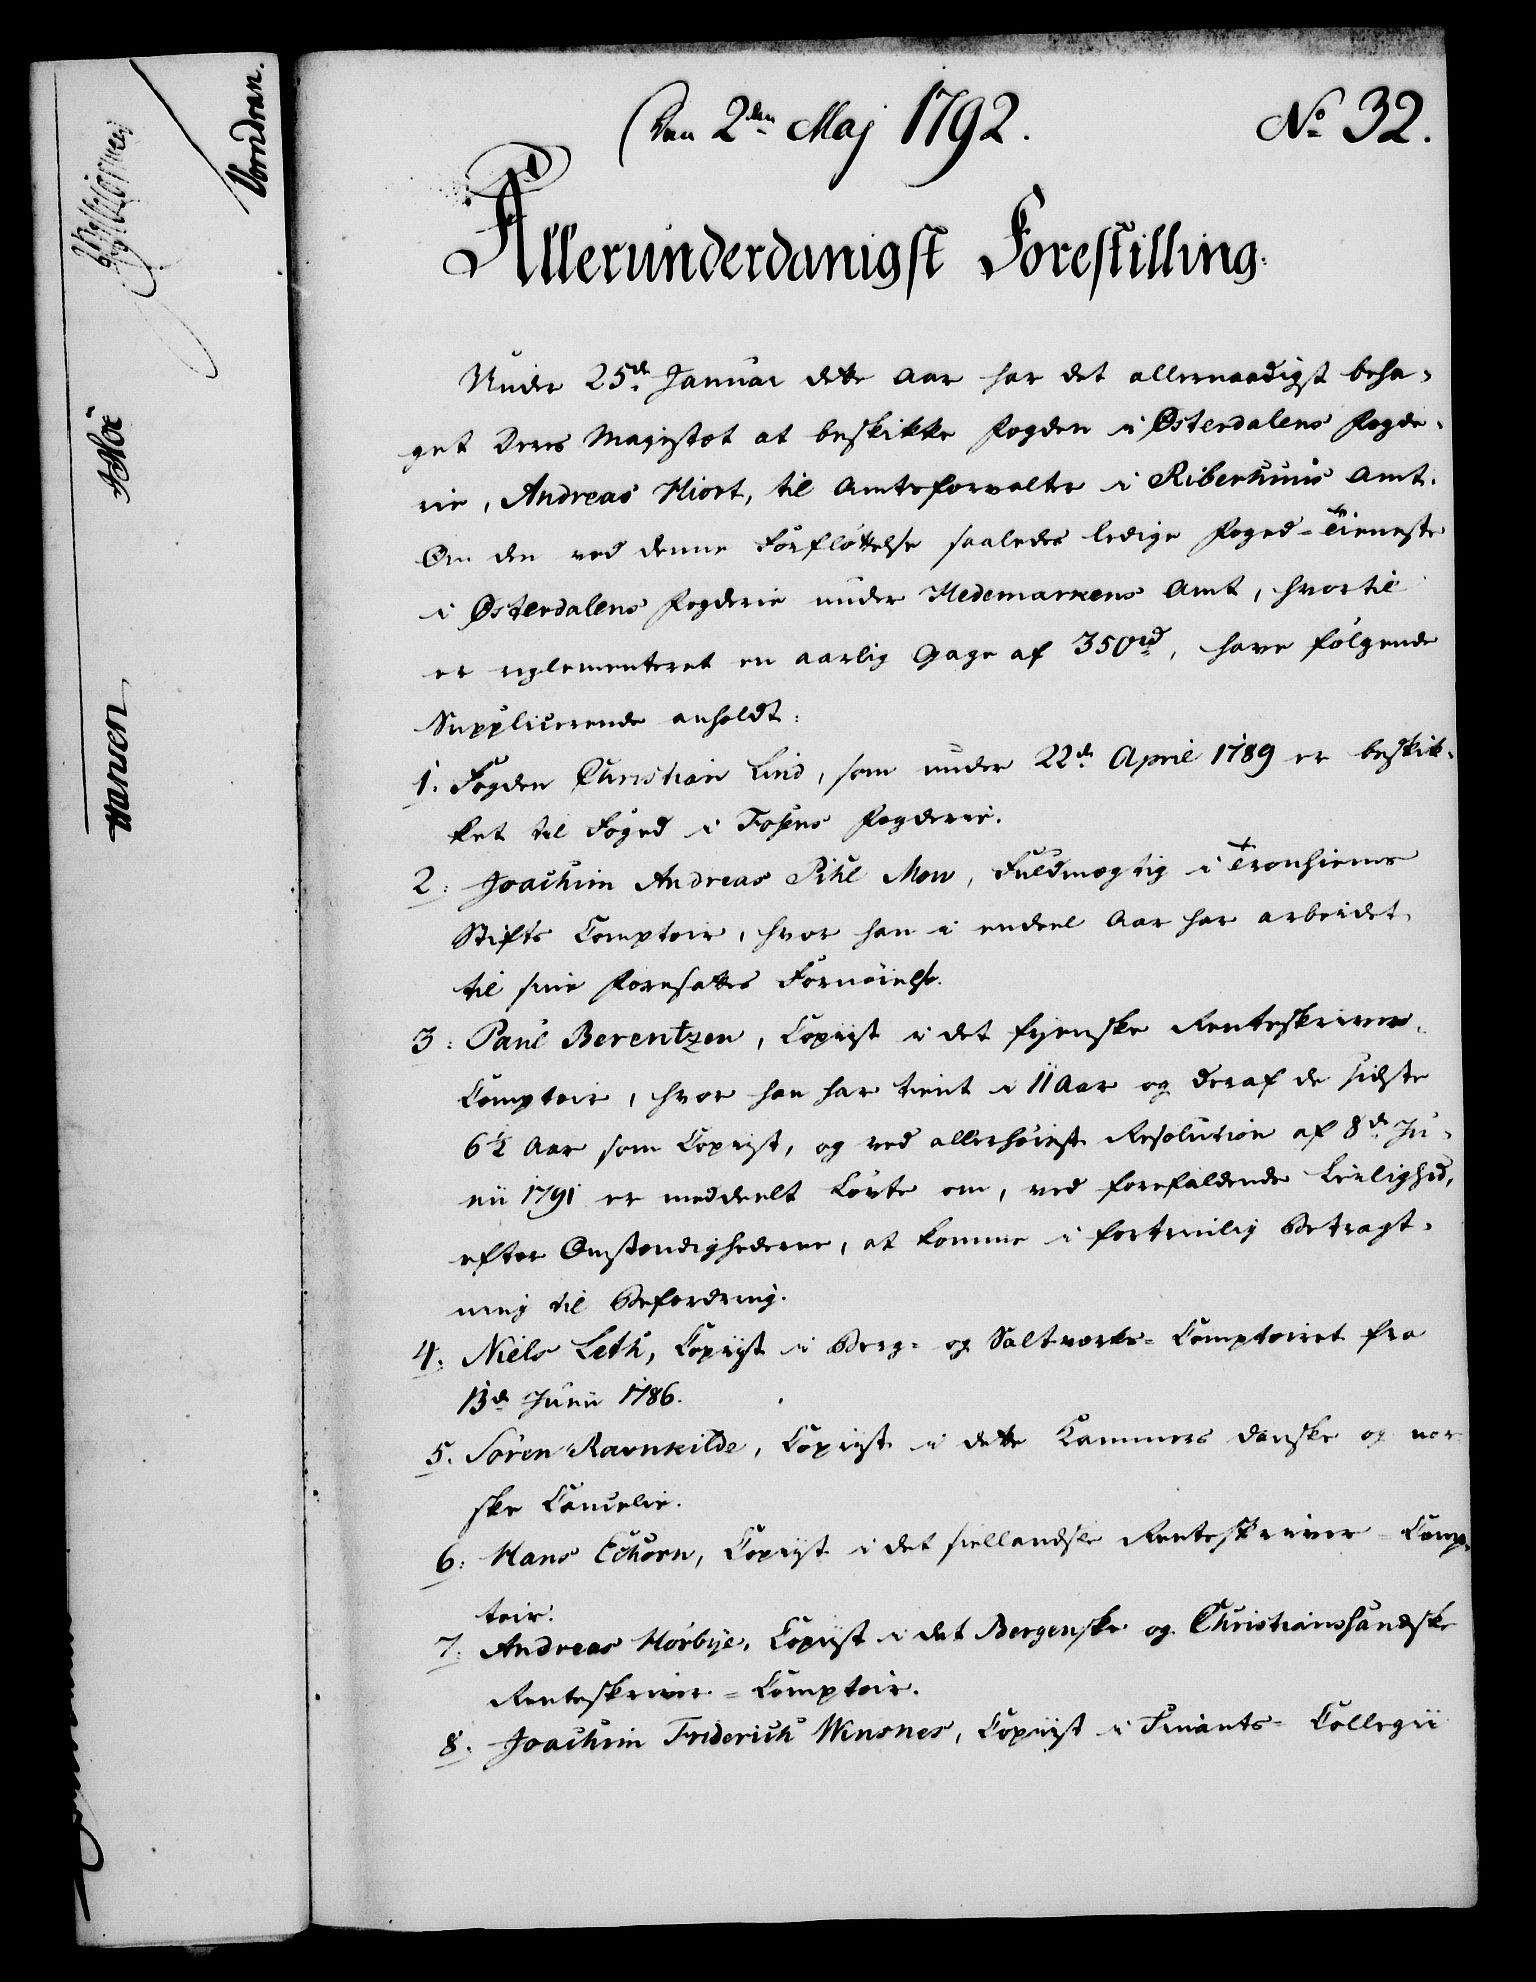 Den 2den Maj 1792. No 32.
Allerunderdanigst Forestilling.
Under 25de Januar dette Aar har det allernaadigst beha-
get Deres Majestæt at beskikke Fogden i Østerdalens Fogde-
rie, Andreas Hiort, til Amtsforvalter i Riberhuus Amt.
Om den ved denne Forflöttelse saaledes ledige Foged-Tieneste
i Østerdalens Fogderie under Hedemarkens Amt, hvortil
er reglementeret en aarlig Gage af 350 rd, have følgende
Supplicerende anholdt:
1. Fogden Christian Lind, som under 22de April 1789 er beskik-
ket til Foged i Fosens Fogderie.
2. Joachim Andreas Pihl Mow, Fuldmægtig i Tronhiems
Stifts Comptoir, hvor han i endeel Aar har arbeidet
til sine Foresattes Fornöielse.
3. Paul Berentzen, Copiist i det fyenske Renteskriver-
Comptoir, hvor han har tient i 11 Aar og deraf de sidste
6½ Aar som Copiist, og ved allerhöieste Resolution af 8de Ju-
nii 1791 er meddeelt Lövte om, ved forefaldende Leilighed,
efter Omstændighederne, at komme i fortrinlig Betragt-
ning til Befordring.
4. Niels Leth, Copiist i Berg- og Saltværks-Comptoiret fra
13de Junii 1786.
5. Sören Ravnkilde, Copiist i dette Kammers danske og nor-
ske Cancelie.
6. Hans Echorn, Copiist i det siellandske Renteskriver-Comp-
toir.
7. Andreas Hörbye, Copiist i det Bergenske og Christiansandske
Renteskriver-Comptoir.
8. Joachim Friderich Wensnes, Copiist i Finants-Collegii
Vorndran.
Moe
Hansen